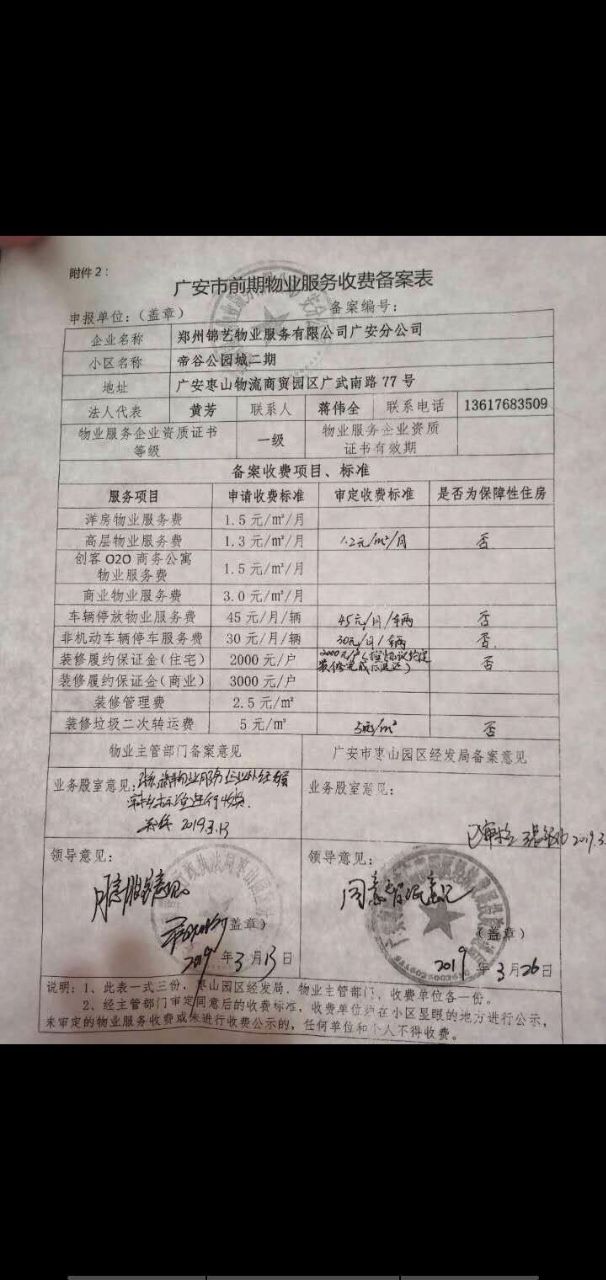 附件2：
广安市前期物业服务收费备案表
申报单位：（盖章） 备案编号：
企业名称 郑州锦艺物业服务有限公司广安分公司
小区名称 帝谷公园城二期
地址 广安枣山物流商贸园区广武南路77号
法人代表 黄芳 联系人 蒋伟全 联系电话 13617683509
物业服务企业资质证书等级 一级 物业服务企业资质证书有效期
备案收费项目、标准
服务项目 申请收费标准 审定收费标准 是否为保障性住房
洋房物业服务费 1.5元/㎡/月
高层物业服务费 1.3元/㎡/月 1.2元/㎡/月 否
创客O2O商务公寓物业服务费 1.5元/㎡/月
商业物业服务费 3.0元/㎡/月
车辆停放物业服务费 45元/月/辆 45元/月/辆 否
非机动车辆停车服务费 30元/月/辆 30元/月/辆 否
装修履约保证金(住宅) 2000元/户 2000元/户 否
装修履约保证金(商业) 3000元/户
装修管理费 2.5元/㎡
装修垃圾二次转运费 5元/㎡ 5元/㎡ 否
物业主管部门备案意见 广安市枣山园区经发局备案意见
业务股室意见： 业务股室意见：
2019.3.13
2019.3.
领导意见： 领导意见：
同意
（盖章） （盖章）
2019年3月13日 2019年3月26日
说明：1、此表一式三份，枣山园区经发局、物业主管部门，收费单位各一份。
2、经主管部门审定同意后的收费标准，收费单位约在小区显眼的地方进行公示，
未审定的物业服务收费或未进行收费公示的，任何单位和个人不得收费。